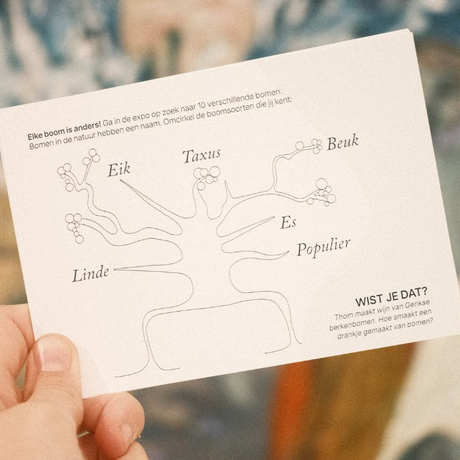 Elke boom is anders! Ga in de expo op zoek naar 10 verschillende bomen.
Bomen in de natuur hebben een naam. Omcirkel de boomsoorten die jij kent:
Eik
Taxus
Beuk
Es
Populier
Linde
WIST JE DAT?
Thom maakt wijn van Gentse
berkenbomen. Hoe smaakt een
drankje gemaakt van bomen?